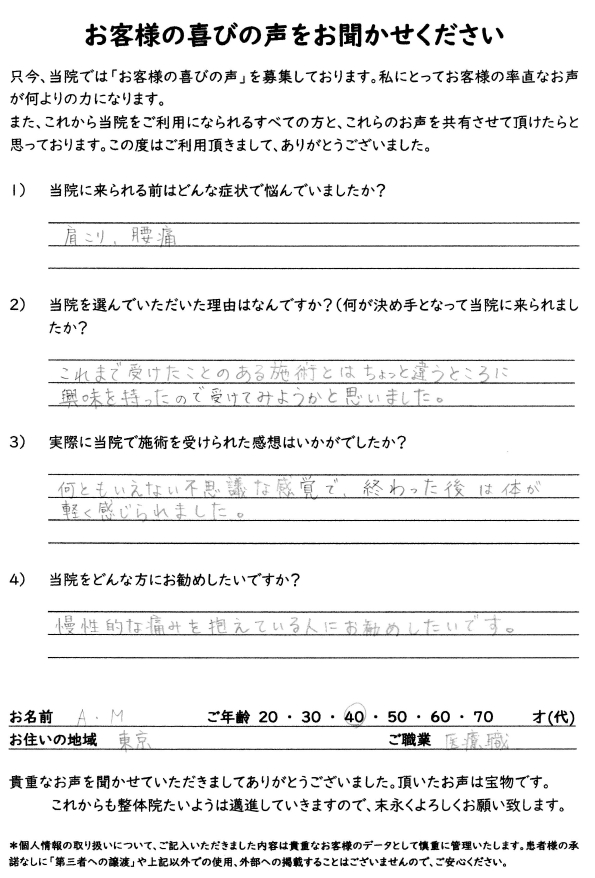 お客様の喜びの声をお聞かせください
只今、当院では「お客様の喜びの声」を募集しております。私にとってお客様の率直なお声
が何よりの力になります。
また、これから当院をご利用になられるすべての方と、これらのお声を共有させて頂けたらと
思っております。この度はご利用頂きまして、ありがとうございました。
1） 当院に来られる前はどんな症状で悩んでいましたか？
肩こり、腰痛
2） 当院を選んでいただいた理由はなんですか？（何が決め手となって当院に来られまし
たか？
これまで受けたことのある施術とはちょっと違うところに
興味を持ったので受けてみようかと思いました。
3） 実際に当院で施術を受けられた感想はいかがでしたか？
何ともいえない不思議な感覚で、終わった後は体が
軽く感じられました。
4） 当院をどんな方にお勧めしたいですか？
慢性的な痛みを抱えている人にお勧めしたいです。
お名前 A.M ご年齢 20・30・40・50・60・70 才(代)
お住いの地域 東京 ご職業 医療職
貴重なお声を聞かせていただきましてありがとうございました。頂いたお声は宝物です。
これからも整体院たいようは邁進していきますので、末永くよろしくお願い致します。
*個人情報の取り扱いについて、ご記入いただきました内容は貴重なお客様のデータとして慎重に管理いたします。患者様の承
諾なしに「第三者への譲渡」や上記以外での使用、外部への掲載することはございませんので、ご安心ください。